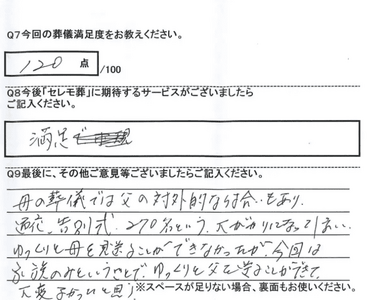 Q7今回の葬儀満足度をお教えください。
120 点 /100
Q8今後「セレモ葬」に期待するサービスがございましたら
ご記入ください。
満足で
Q9最後に、その他ご意見等ございましたらご記入ください。
母の葬儀では父の対外的な付合いもあり
通夜、告別式 270名という、大がかりになってしまい
ゆっくりと母を見送ることができなかったが、今回は
家族のみということで、ゆっくりと父を送ることができて
大変よかったと思う
※スペースが足りない場合、裏面もお使いください。